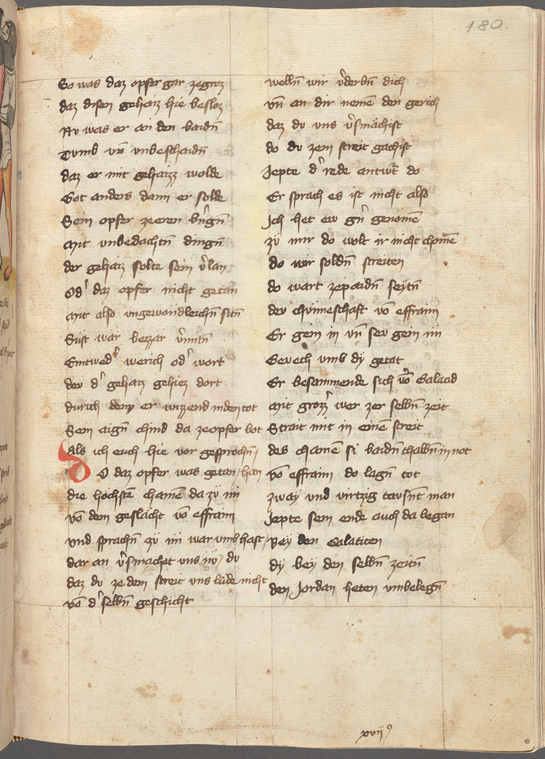 180.
So was daz opfer gar ze groz
daz disen gehaiz hie besloz
Nv was er an den baidn̄
Tvmb vn̄ vnbeschaidn̄
daz er mit gehaizz wolde
Got anders dann er solde
Sein opfer zeeren brinḡn
mit vnbedachtn̄ dingn̄
der gehaiz solte sein v̄lan
Od' daz opfer nicht getan
mit also vngewondleichn̄ sitn̄
Süst war bezzer
Entwed' werich od' wort
der d' gehaiz gehiez dort
durich deny er wizend in den tot
Sein aign̄ chind da ze opfer bot
als ich euch hie vor gesprochn̄
O daz opfer was getan
die höchstn̄ chamē da zü im
von dem geslächt vō effraim
vnd sprachn̄ zü im war vmb hast
dar an v̄smachet vns nv du
daz du ze dem streit vns lüde nicht
von d' selbn̄ geschicht
welln̄ wir v̄derbn̄ dich
vn̄ an dir nemē den gerich
daz dv vns v̄smächist
do dv zem streit gachist
Jepte d' rede antw't do
Er sprach es ist nicht also
Ich het ew gn̄ genomē
zü mir do wolt ir nicht chomē
do wir soldn̄ streiten
do wart ze paidn̄ seytn̄
der chvnneschaft vō effraim
Er gein in vn̄ sev gein im
Gerech vmb dy getat
Er besammende sich vō Galaad
mit grozz' wer zer selbn̄ zeit
Strait mit in eine streit
des chamē si baidn̄thalbn̄ in not
vō effraim do lagn̄ tot
zway vnd virtzig tavsn̄t man
Jepte sein ende auch da began
Pey den Galatiten
dy bey den selbn̄ zeitn̄
den Jordan heten vmbelegn̄
xvij